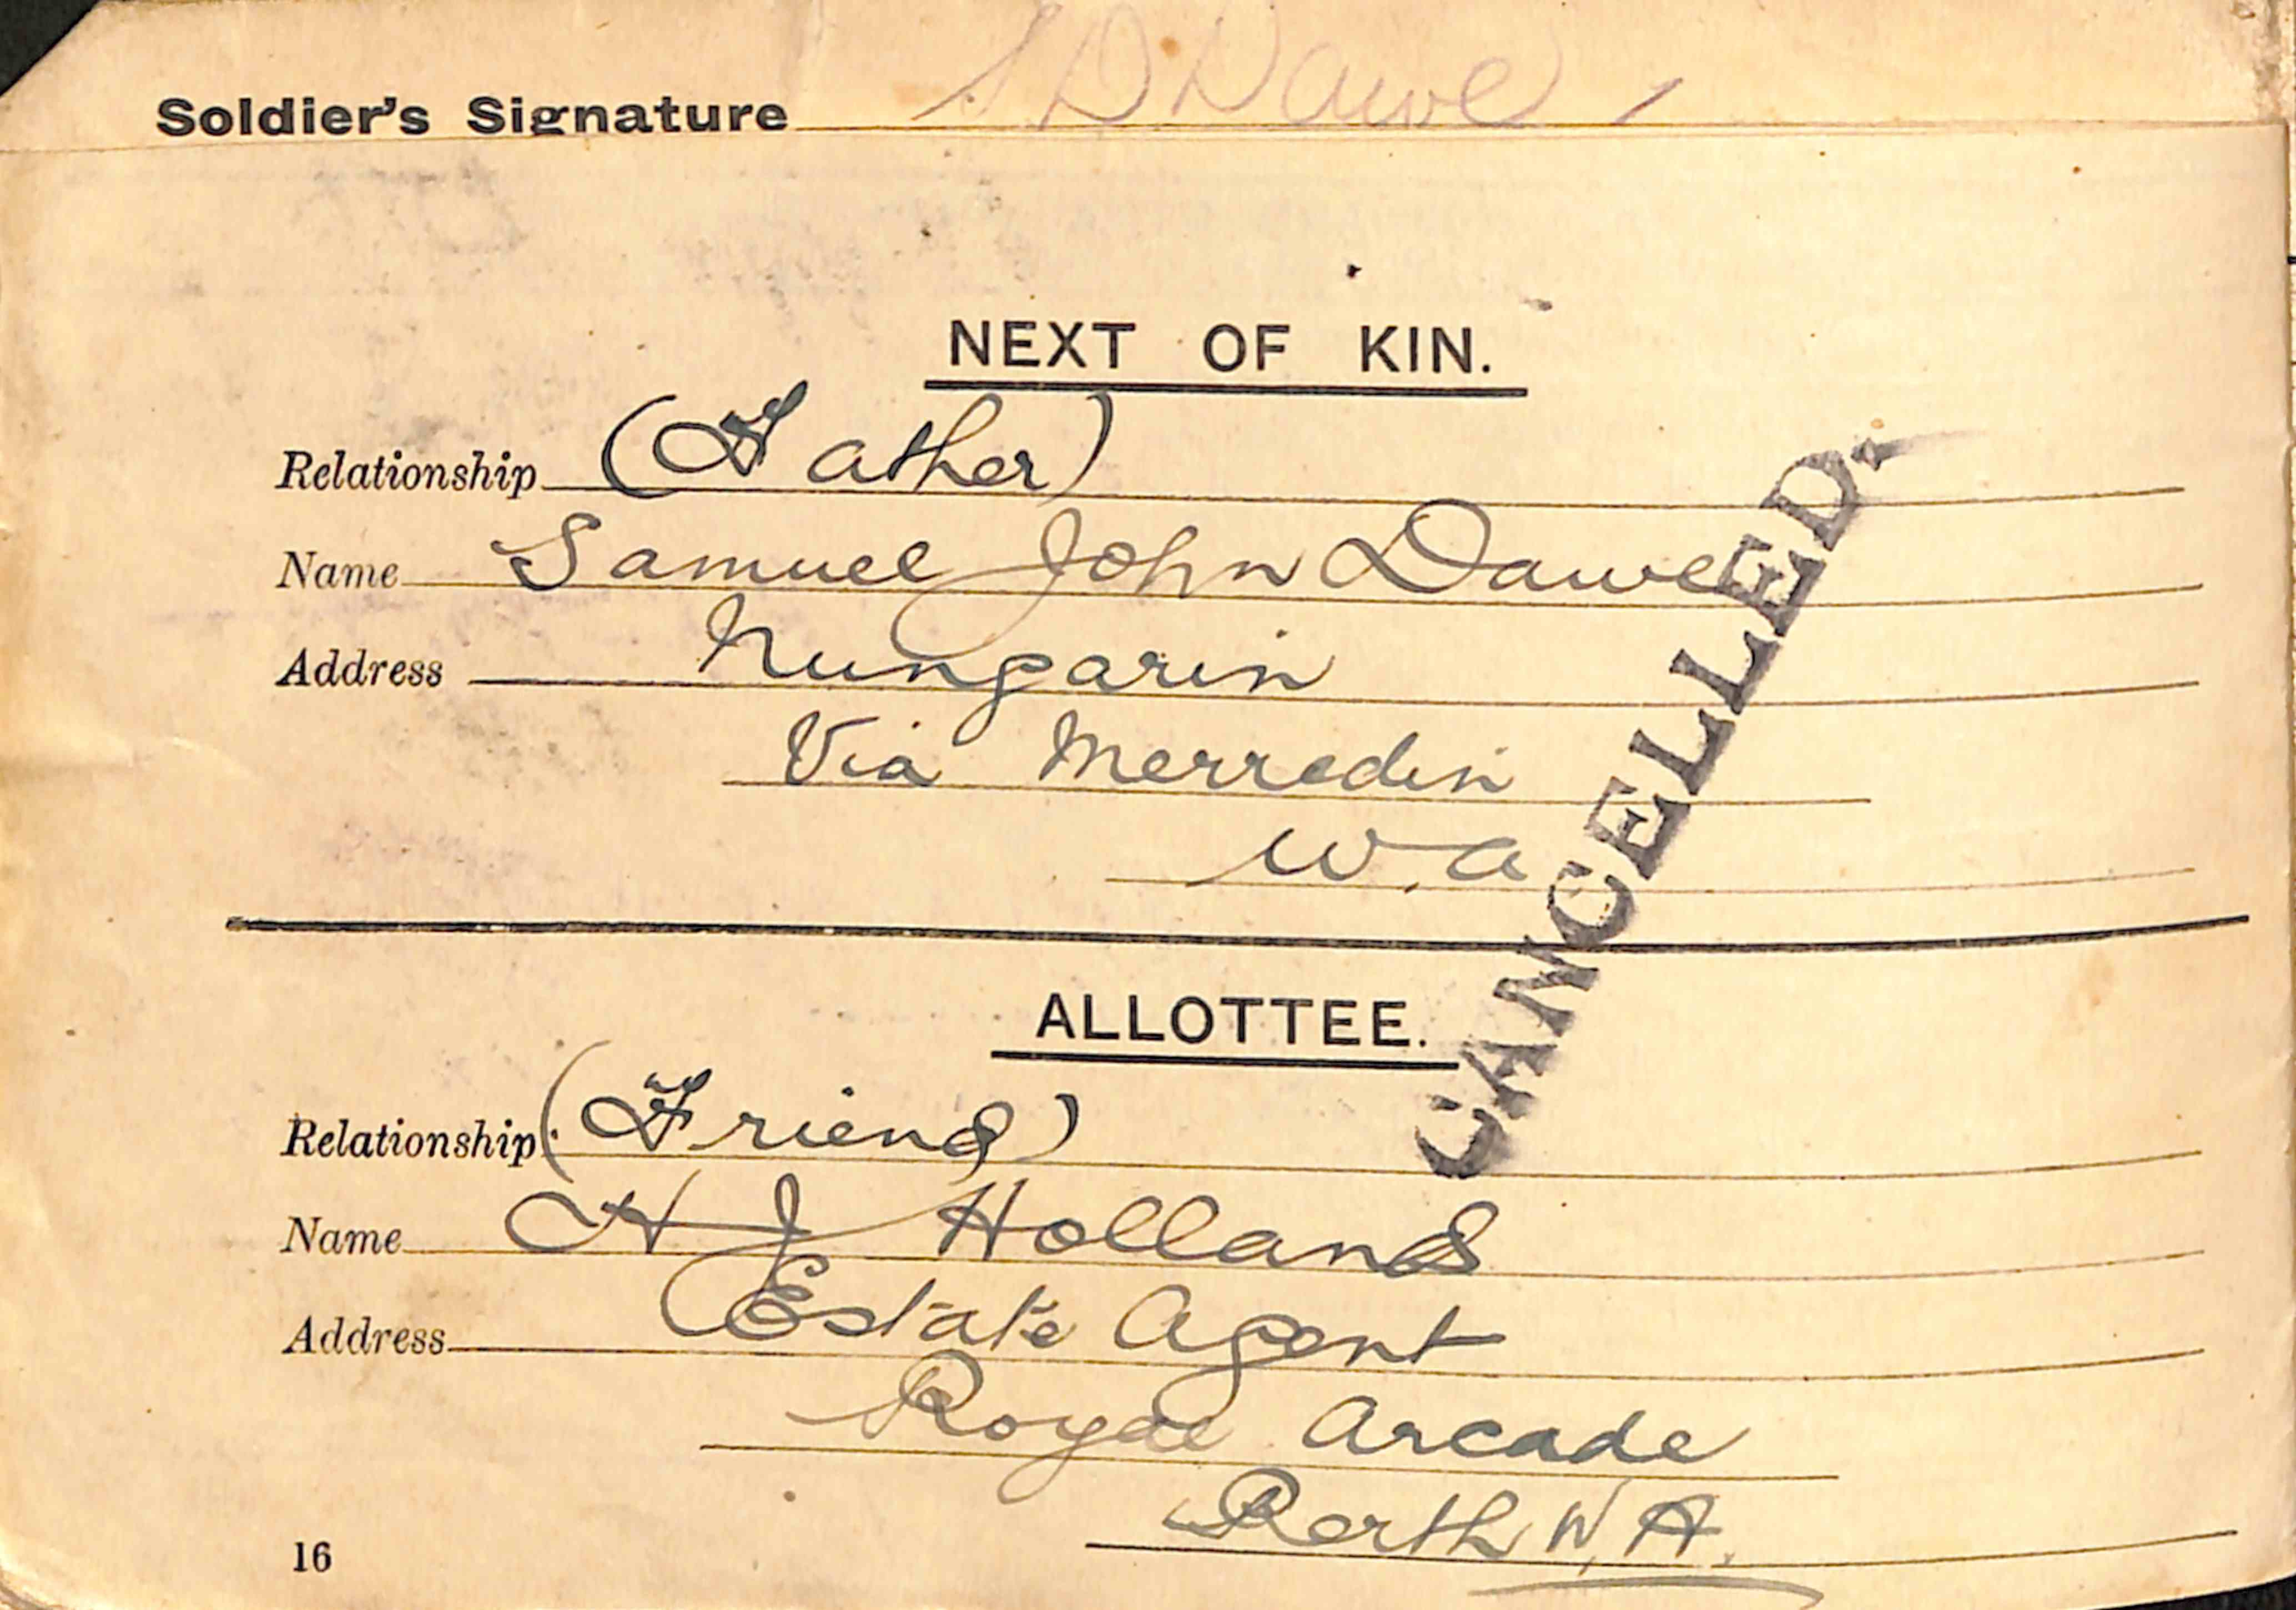 Soldier's Signature S D Dawe
NEXT OF KIN.
Relationship (Father)
Name Samuel John Dawe
Address Nungarin
Via Merredin
W.a
CANCELLED.
ALLOTTEE.
Relationship (Friend)
Name H J Holland
Address Estate Agent
Royal Arcade
Perth W.A.
16